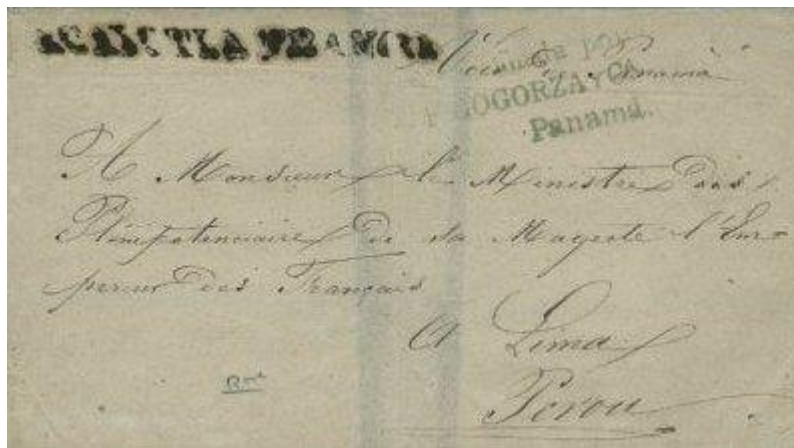 ACAJUTLA FRANCA
Via de Panamá
por
GOGORZA Y CA
Panamá.
A Monsieur le Ministre
Plenipotenciaire De sa Mageste l'Em=
pereur Des Français
A Lima
Perou